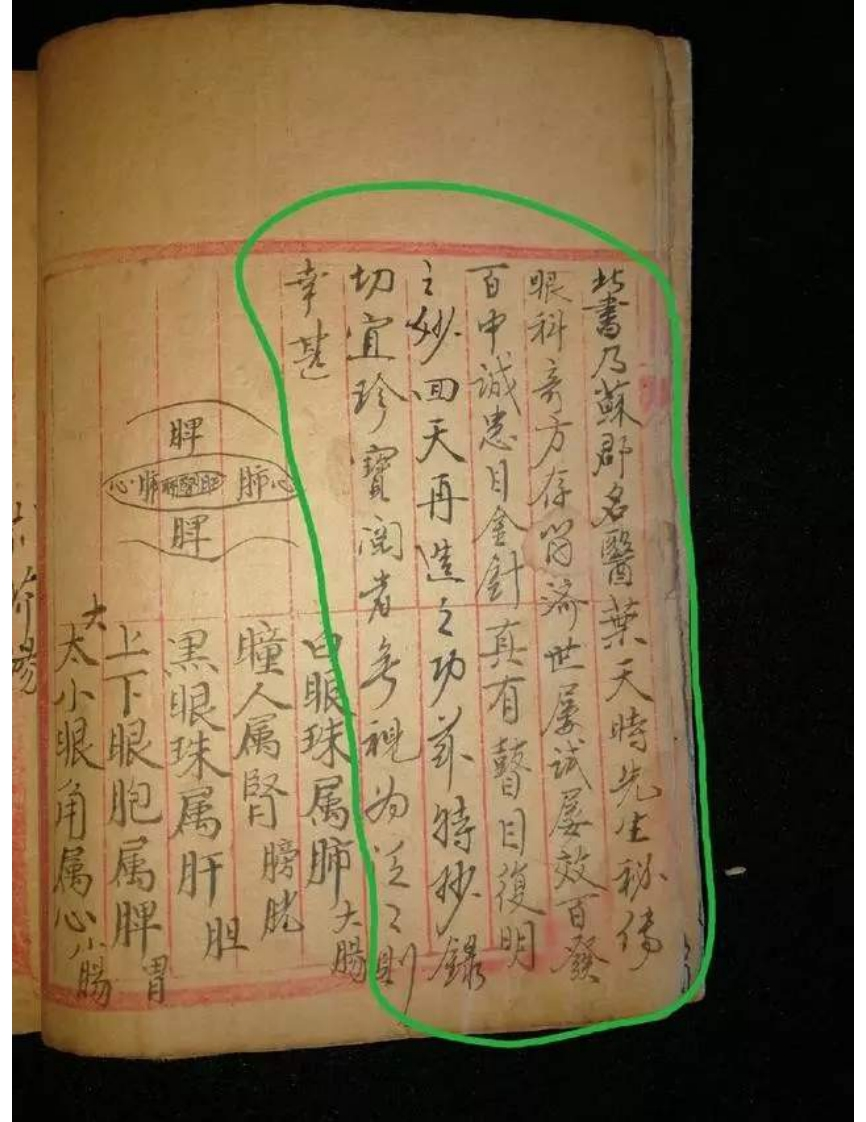 此書乃蘇郡名醫葉天時先生秘傳
眼科奇方存留济世屡试屡效百發
百中诚患目金針真有瞽目復明
之妙回天再造之功兹特抄錄
切宜珍寶阅者无視为泛之則
幸甚
白眼珠属肺大腸
瞳人属腎膀胱
黑眼珠属肝胆
上下眼胞属脾胃
大
太小眼角属心小腸
脾
心肺肝腎肝肺心
脾